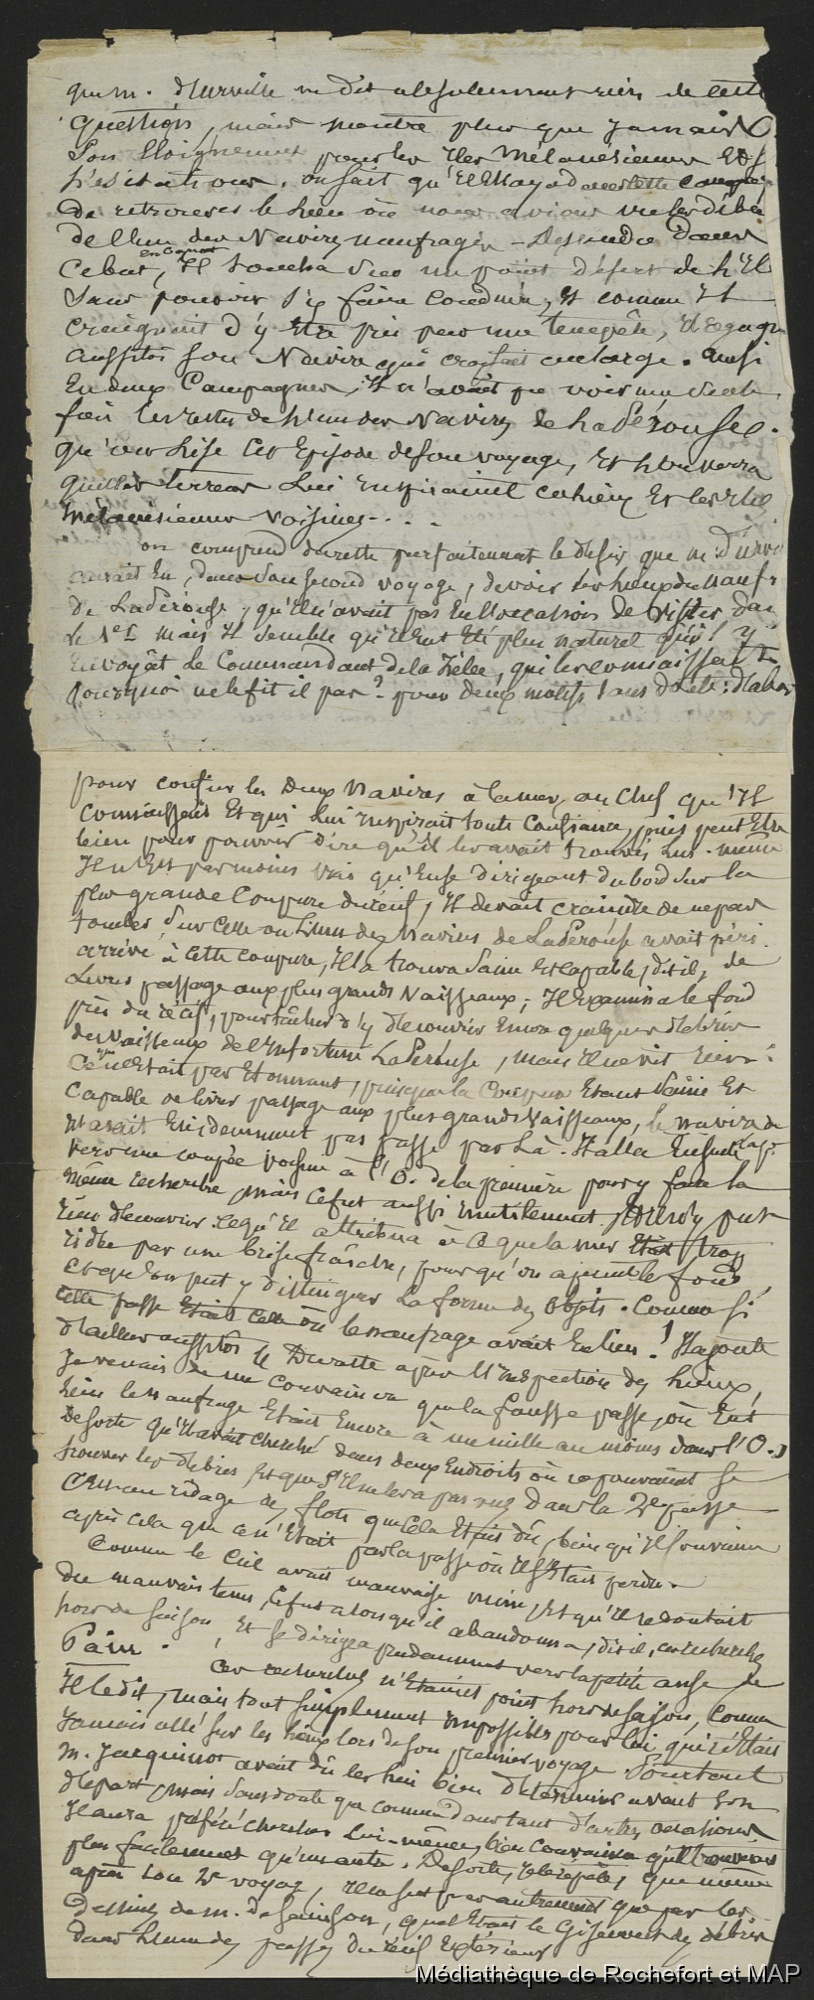 que m. d'Urville ne dit absolument rien de cette
question, mais montre plus que jamais
son Eloignement pour les Iles Mélanésiennes Et
hésitations. on sait qu'Il Essaya dans cette
de retrouver le lieu où nous avions vu les débris
de l'Un des Navires naufragés - Descendu dans
Cebut, en Canot Il toucha sur un point désert de l'Il
sans pouvoir s'y faire conduire, Et comme Il
craignait d'y Etre pris par une tempête, Il regagna
aussitôt son Navire qui croisait au large. ainsi
En deux Campagnes, Il n'avait pu voir une seule
fois les restes de l'un des Navires de La Pérouse.
qu'on lise cet Episode de son voyage, Et l'on verra
quelles terreurs lui Inspiraient ces lieux Et les Iles
Mélanésiennes voisines....
on comprend du reste parfaitement le désir que m. d'Urvi
aurait Eu, dans son second voyage, de voir les lieux du nauf
de La Pérouse, qu'Il n'avait pas Eu l'occasion de visiter dan
le No 1 mais Il semble qu'Il eut Eté plus naturel qu'il y
Envoyât le Commandant de la Zélée, qui les connaissait
pourquoi ne le fit il pas? pour deux motifs sans doute: d'abor
pour confier les Deux Navires à la mer, au Chef qu'Il
connaissait Et qui lui Inspirait toute Confiance, puis peut Etre
bien pour pouvoir dire qu'il les avait trouvés lui-même
Il n'Est pas moins vrai qu'En se dirigeant d'abord sur la
plus grande Coupure du récif, Il devait craindre de ne pas
tomber sur celle où l'un des Navires de La Pérouse avait péri.
arrivé à cette coupure, Il la trouva saine Et capable, dit il, de
livrer passage aux plus grands Vaisseaux; Il Examina le fond
près du récif, pour tâcher d'y découvrir Encore quelques débris
des Vaisseaux de l'Infortuné La Pérouse, mais Il ne vit rien:
Ce qui n'Etait pas Etonnant, puisque la Coupure Etant saine Et
Capable de livrer passage aux plus grands Vaisseaux, le navire de
n'avait Evidemment pas passé par là. Il alla Ensuite
vers une coupée voisine à l'O. de la première pour y faire la
même recherche, mais ce fut aussi inutilement, Il n'y put
rien découvrir. Ce qu'Il attribua à ce que la mer Etait trop
ridée par une brise fraîche, pour qu'on aperçut le fond,
Et qu'on put y distinguer la forme des objets. Comme si
cette passe Etait celle où le naufrage avait Eu lieu! Il ajoute
d'ailleurs aussitôt Et Duratte après l'Inspection des lieux,
Je venais de me convaincre que la fausse passe, où Eut
lieu le naufrage Etait Encore à un mille au moins dans l'O.,
De sorte qu'Il avait cherché dans deux Endroits où ne pouvaient se
trouver les débris, Et que s'Il ne les a pas vus dans la 2e passe
C'Est au ridage des flots que cela Etait dû, bien qu'Il convienne
après cela que ce n'Etait pas la passe où Il s'Etait perdu.
Comme le Ciel avait mauvaise mine, Et qu'Il redoutait
du mauvais tems, ce fut alors qu'il abandonna, dit il, ces recherches
hors de saison, Et se dirigea prudemment vers la petite anse de
Païu.
Ces recherches n'Etaient point hors de saison, comme
Il le dit, mais tout simplement impossibles pour lui, qui n'Etait
Jamais allé sur les lieux lors de son premier voyage. Pourtant
M. Jacquinot avait dû les lui bien déterminer avant son
départ, mais sans doute que comme dans tant d'autres occasions
Il aura préféré chercher lui-même, bien convaincu qu'Il trouverait
plus facilement qu'un autre. De sorte, Je le répète, que même
après son 2e voyage, Il ne sut pas autrement que par les
dessins de m. de Sainson, quel Etait le Gisement des débris
dans l'une des passes du récif Extérieur
Médiathèque de Rochefort et MAP